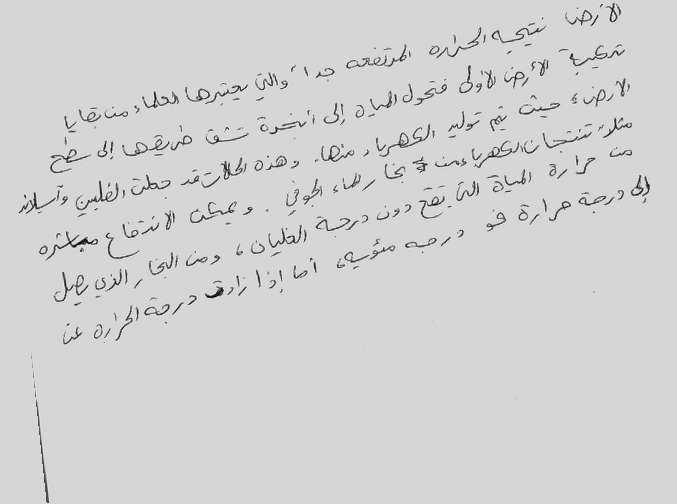 الأرض نتيجه الحراره المرتفعه جداً والتي يعتبرها العلماء من بقايا
تركيبة الأرض الأولى فتحول المياه إلى أبخرة تشق طريقها إلى سطح
الارض، حيث يتم توليد الكهرباء منها. وهذه الحالات قد جعلت الفلبين وآسيلاند
مثلاً تنتجان الكهرباء من بخار الماء الجوفي. ويمكن الانتفاع مباشره
من حرارة المياة التي تقع دون درجة الغليان، ومن البخار الذي يصل
إلى درجة حرارة درجه مئويه، أما إذا زادت درجة الحراره عن